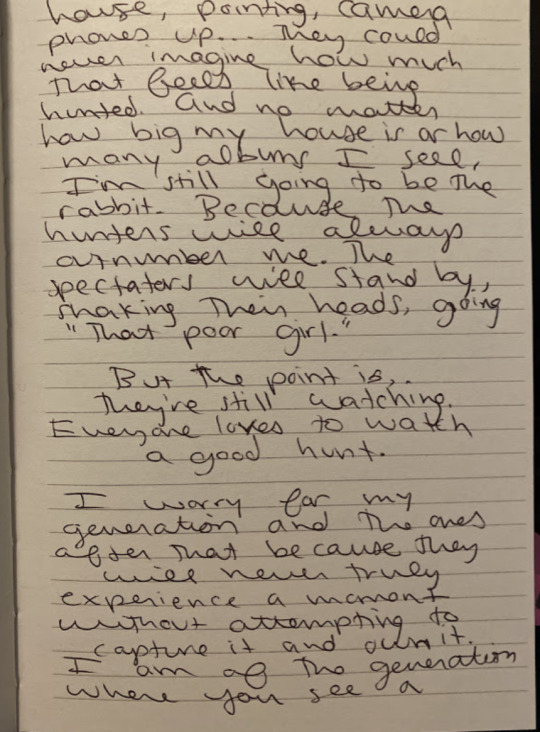 house, pointing, camera
phones up... They could
never imagine how much
that feels like being
hunted. And no matter
how big my house is or how
many albums I sell,
I'm still going to be the
rabbit. Because the
hunters will always
outnumber me. The
spectators will stand by,
shaking their heads, going
"That poor girl."
But the point is,..
They're still watching.
Everyone loves to watch
a good hunt.
I worry for my
generation and the ones
after that because they
will never truly
experience a moment
without attempting to
capture it and own it.
I am of the generation
where you see a